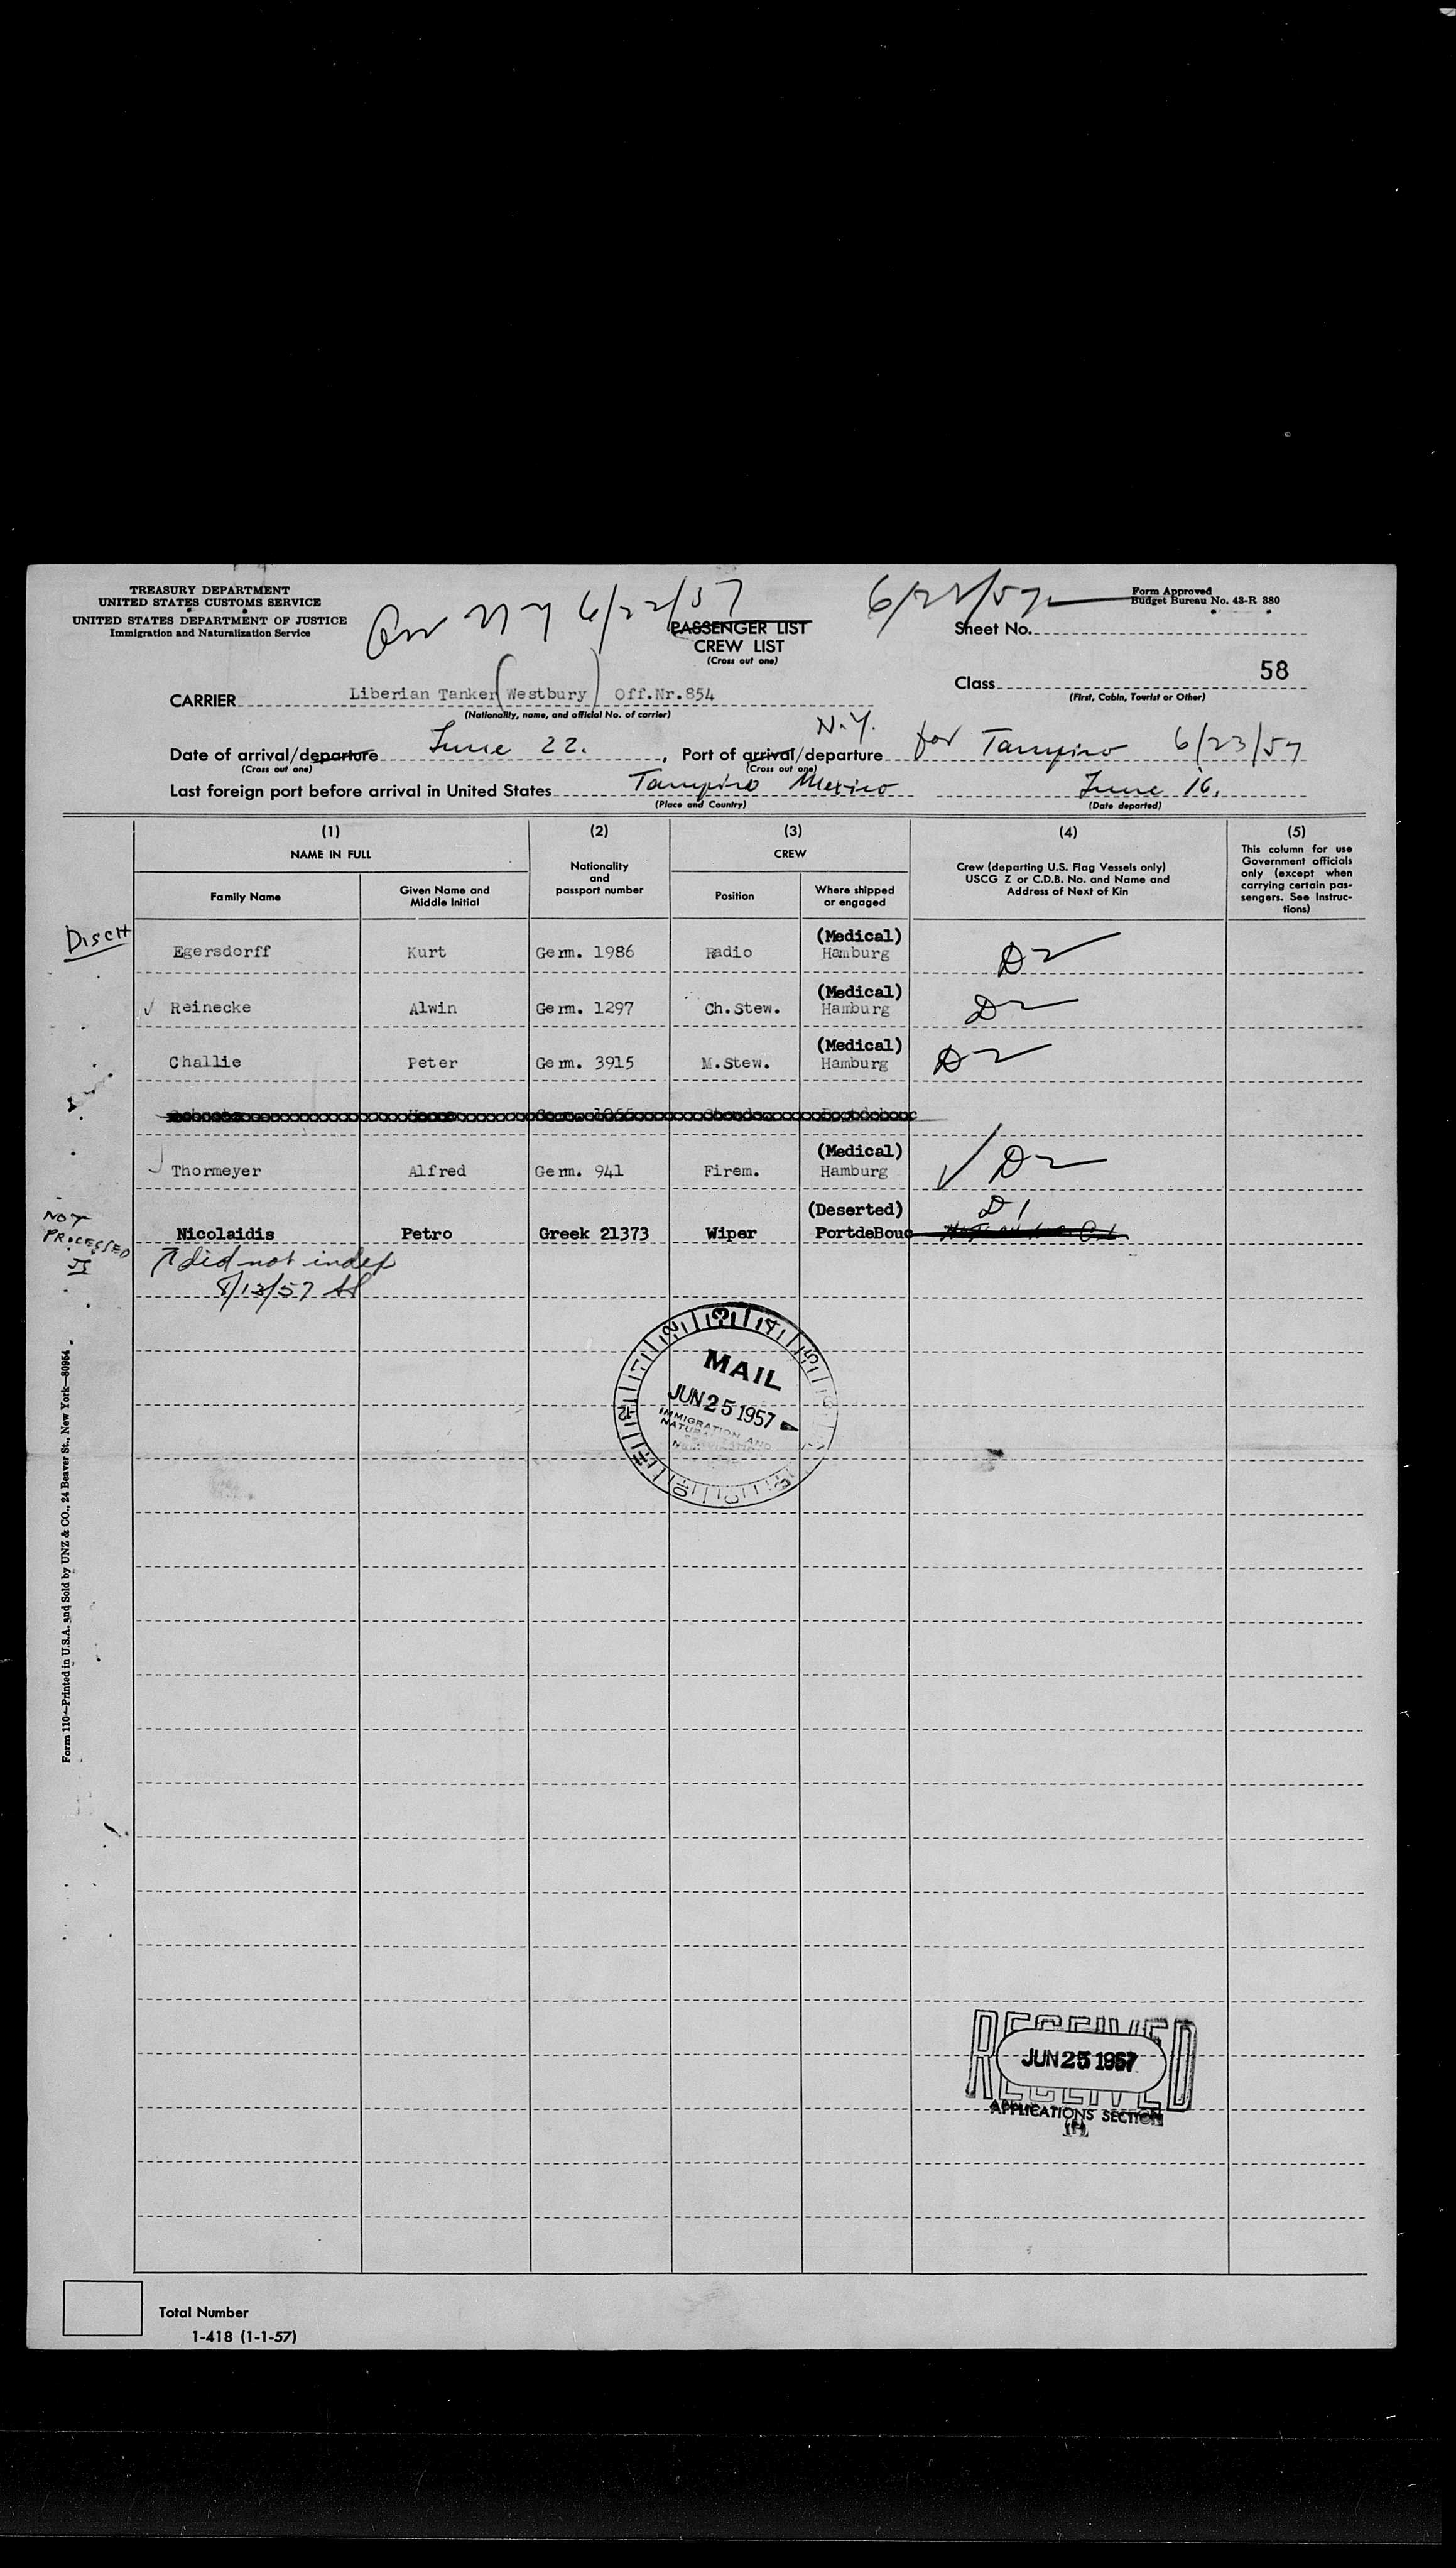 TREASURY DEPARTMENT
UNITED STATES CUSTOMS SERVICE
UNITED STATES DEPARTMENT OF JUSTICE
Immigration and Naturalization Service
Arr N Y 6/22/57
6/22/57
Form Approved
Budget Bureau No. 43-R 380
PASSENGER LIST
CREW LIST
(Cross out one)
Sheet No.
58
Class
(First, Cabin, Tourist or Other)
CARRIER Liberian Tanker (Westbury) Off.Nr.854
(Nationality, name, and official No. of carrier)
N.Y.
Date of arrival/departure June 22. , Port of arrival/departure for Tampico 6/23/57
(Cross out one) (Cross out one)
Last foreign port before arrival in United States Tampico Mexico June 16.
(Place and Country) (Date departed)
(1) (2) (3) (4) (5)
NAME IN FULL
Family Name
Given Name and
Middle Initial
Nationality
and
passport number
CREW
Position
Where shipped
or engaged
Crew (departing U.S. Flag Vessels only)
USCG Z or C.D.B. No. and Name and
Address of Next of Kin
This column for use
Government officials
only (except when
carrying certain pas-
sengers. See Instruc-
tions)
DISCH
(Medical)
Egersdorff Kurt Germ. 1986 Radio Hamburg D2
(Medical)
✓ Reinecke Alwin Germ. 1297 Ch.Stew. Hamburg D2
(Medical)
Challie Peter Germ. 3915 M.Stew. Hamburg D2
(Medical)
Thormeyer Alfred Germ. 941 Firem. Hamburg ✓ D2
(Deserted) D1
Nicolaidis Petro Greek 21373 Wiper PortdeBouc
NOT
PROCESSED
↑ did not index
8/13/57
MAIL
JUN 25 1957
IMMIGRATION AND
NATURALIZATION
Form 110—Printed in U.S.A. and Sold by UNZ & CO., 24 Beaver St., New York—80954
RECEIVED
JUN 25 1957
RECEIVED
APPLICATIONS SECTION
Total Number
1-418 (1-1-57)